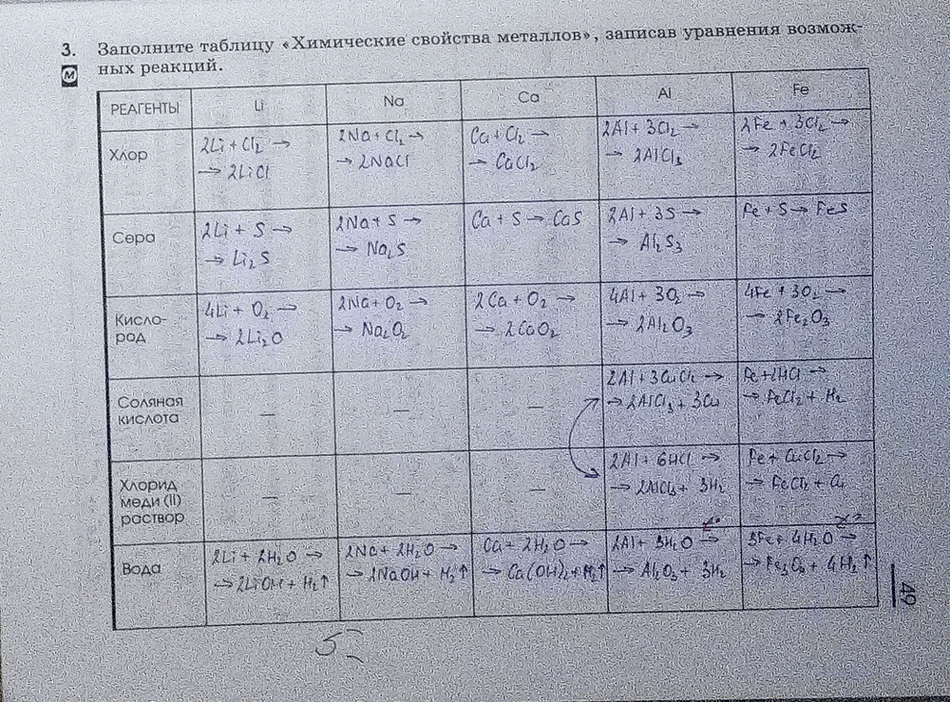 3. Заполните таблицу «Химические свойства металлов», записав уравнения возмож-
М ных реакций.
РЕАГЕНТЫ Li Na Ca Al Fe
Хлор
2Li + Cl₂ →
→ 2LiCl
2Na + Cl₂ →
→ 2NaCl
Ca + Cl₂ →
→ CaCl₂
2Al + 3Cl₂ →
→ 2AlCl₃
2Fe + 3Cl₂ →
→ 2FeCl₂
Сера
2Li + S →
→ Li₂S
2Na + S →
→ Na₂S
Ca + S → CaS
2Al + 3S →
→ Al₂S₃
Fe + S → FeS
Кисло-
род
4Li + O₂ →
→ 2Li₂O
2Na + O₂ →
→ Na₂O₂
2Ca + O₂ →
→ 2CaO₂
4Al + 3O₂ →
→ 2Al₂O₃
4Fe + 3O₂ →
→ 2Fe₂O₃
Соляная
кислота
—
—
—
2Al + 3CuCl₂ →
→ 2AlCl₃ + 3Cu
Fe + 2HCl →
→ FeCl₂ + H₂
Хлорид
меди (II)
раствор
—
—
—
2Al + 6HCl →
→ 2AlCl₃ + 3H₂
Fe + CuCl₂ →
→ FeCl₂ + Cu
Вода
2Li + 2H₂O →
→ 2LiOH + H₂↑
2Na + 2H₂O →
→ 2NaOH + H₂↑
Ca + 2H₂O →
→ Ca(OH)₂ + H₂↑
t°
2Al + 3H₂O →
→ Al₂O₃ + 3H₂
t°
3Fe + 4H₂O →
→ Fe₃O₄ + 4H₂↑
49
5-